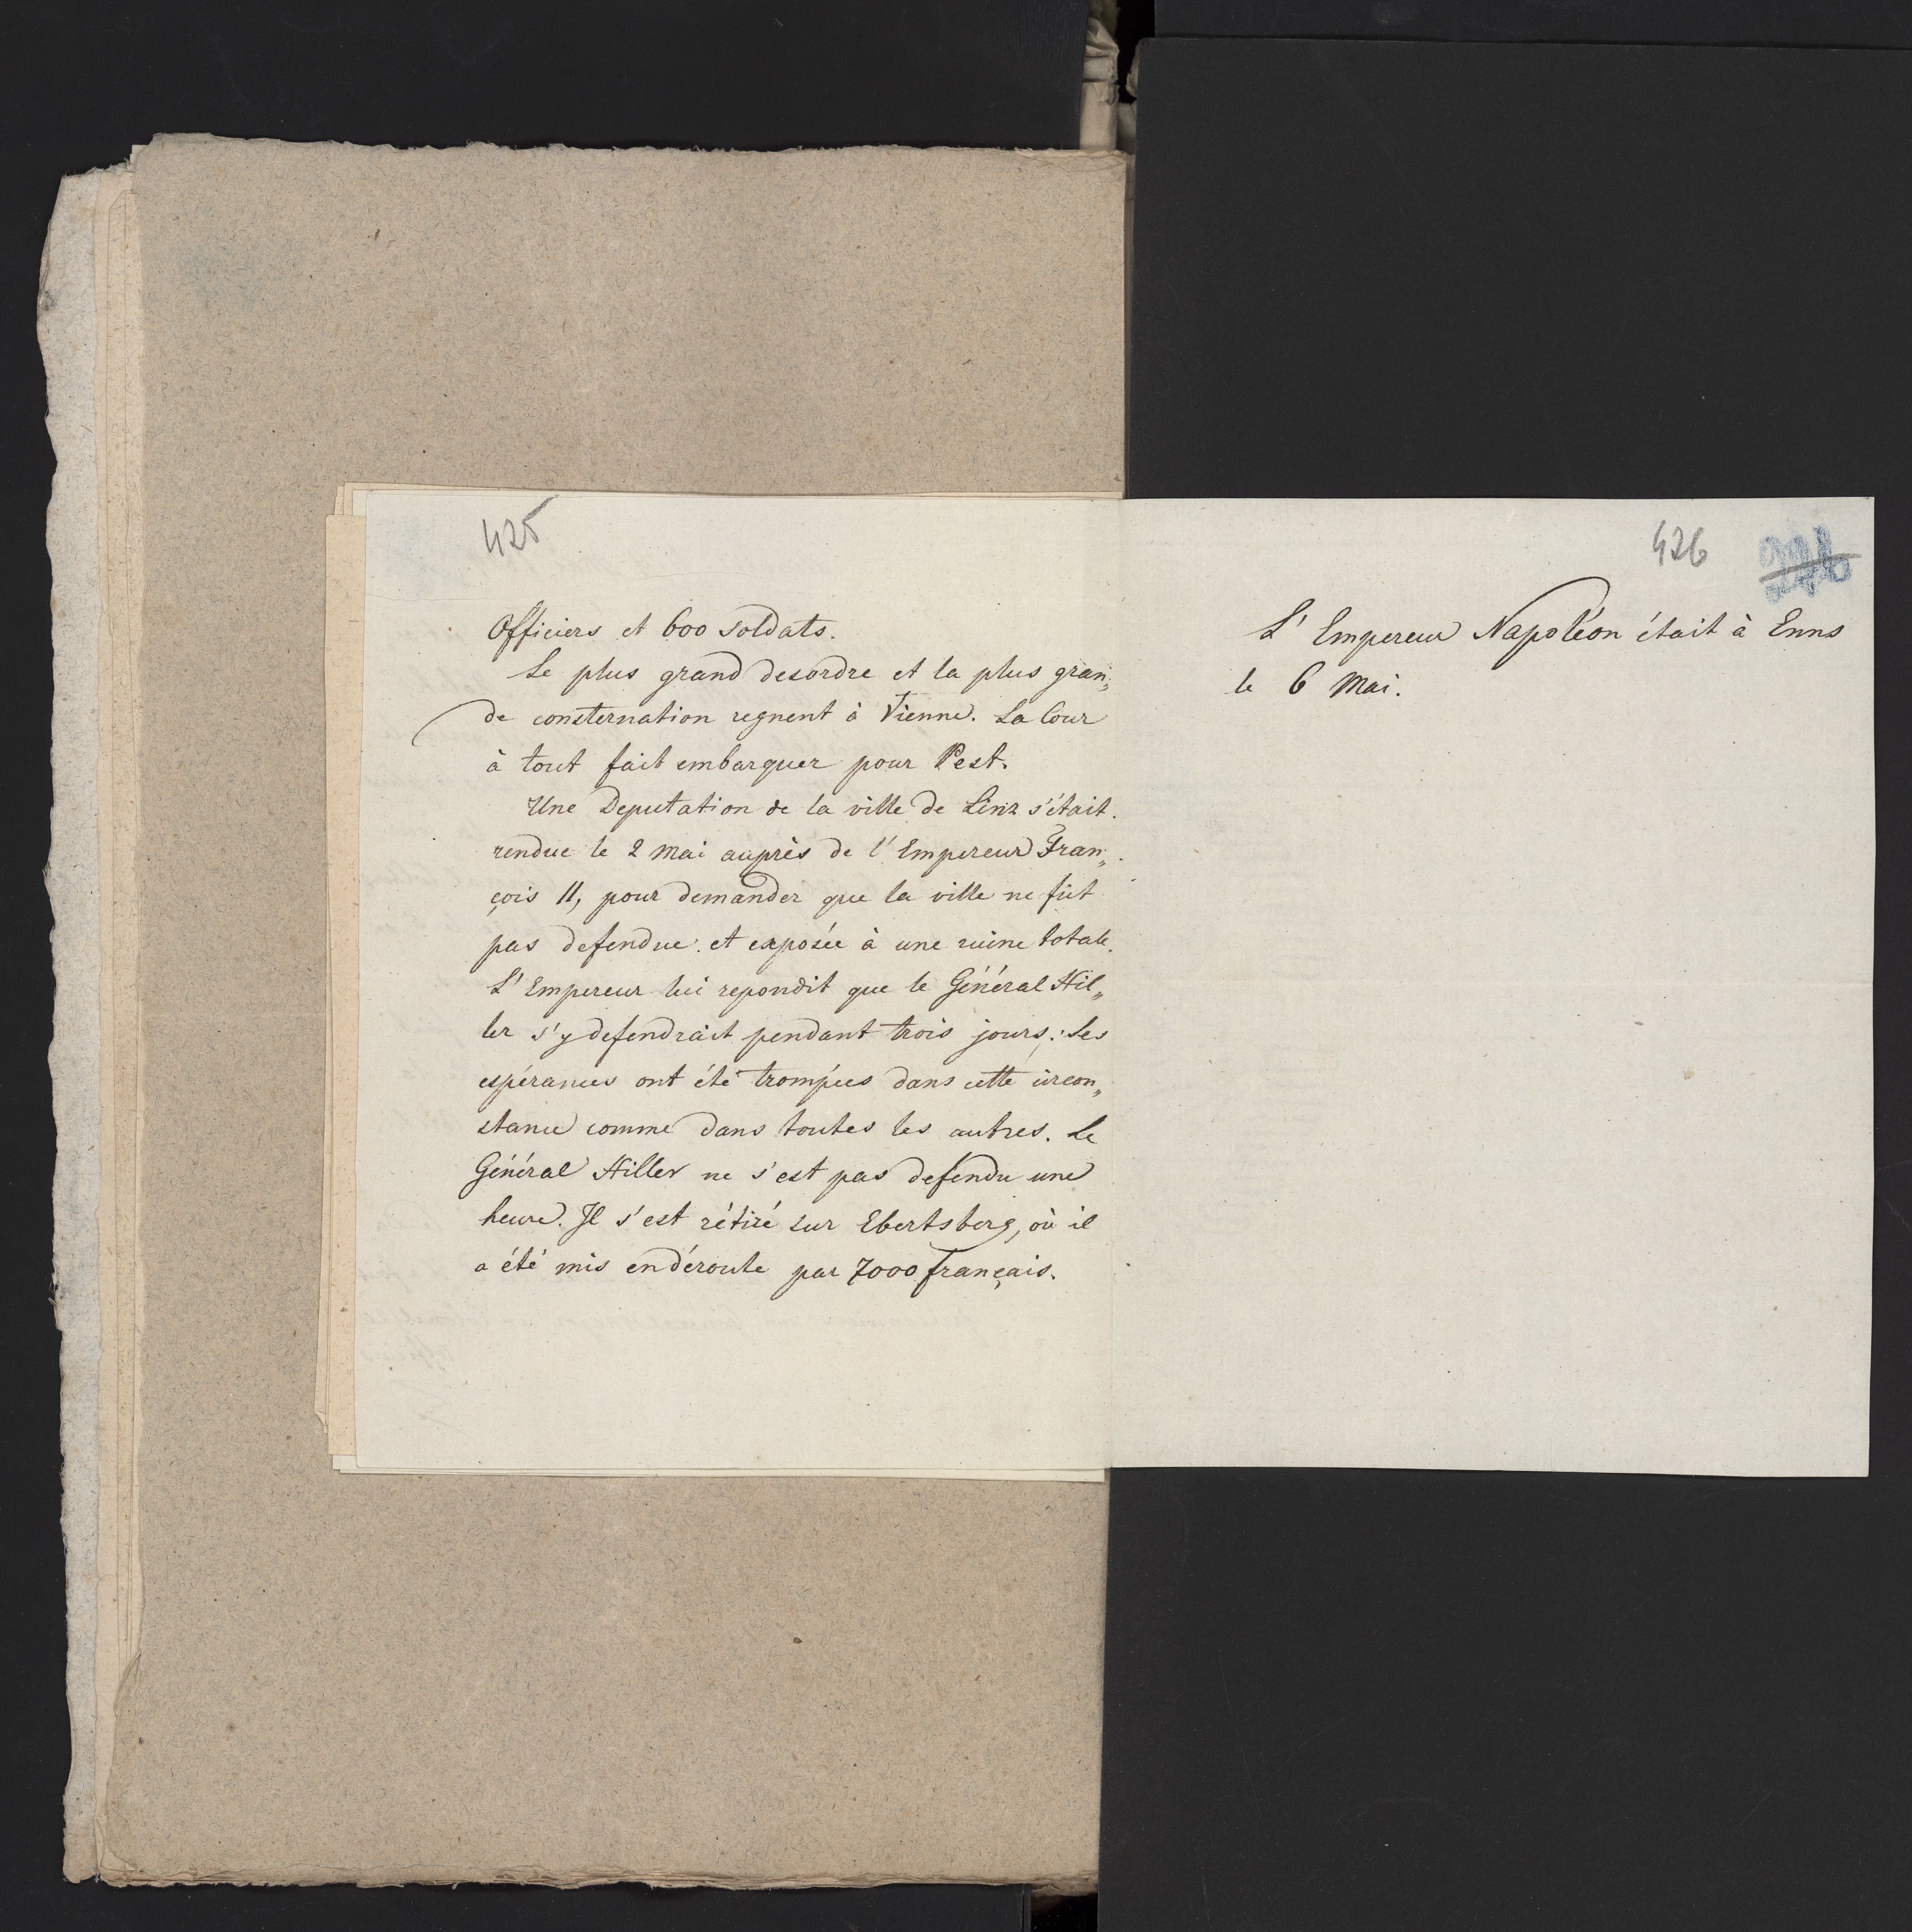 425
Officiers et 600 soldats.
Le plus grand desordre et la plus gran„
de consternation regnent à Vienne. La Cour
à tout fait embarquer pour Pest.
Une Deputation de la ville de Linz s'était
rendue le 2 Mai auprès de l'Empereur Fran„
çois II, pour demander que la ville ne fût
pas defendue et exposée à une ruine totale.
L'Empereur lui repondit que le Général Hil„
ler s'y defendrait pendant trois jours: Ses
espérances ont été trompées dans cette circon„
stance comme dans toutes les autres. Le
Général Hiller ne s'est pas defendu une
heure. Il s'est rétiré sur Ebertsberg, où il
a été mis en déroute par 7000 français.
426
L'Empereur Napoléon était à Enns
le 6 Mai.